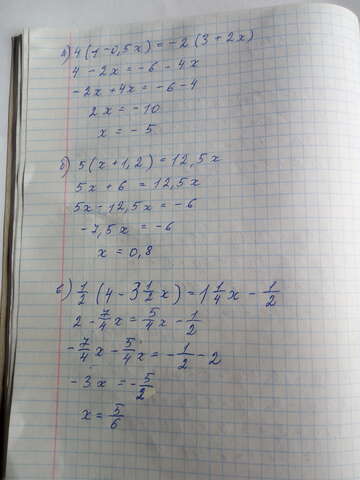 а) 4(1-0,5x)=-2(3+2x)
4-2x=-6-4x
-2x+4x=-6-4
2x=-10
x=-5
б) 5(x+1,2)=12,5x
5x+6=12,5x
5x-12,5x=-6
-7,5x=-6
x=0,8
в) 1/2(4-3 1/2x)=1 1/4x-1/2
2-7/4x=5/4x-1/2
-7/4x-5/4x=-1/2-2
-3x=-5/2
x=5/6